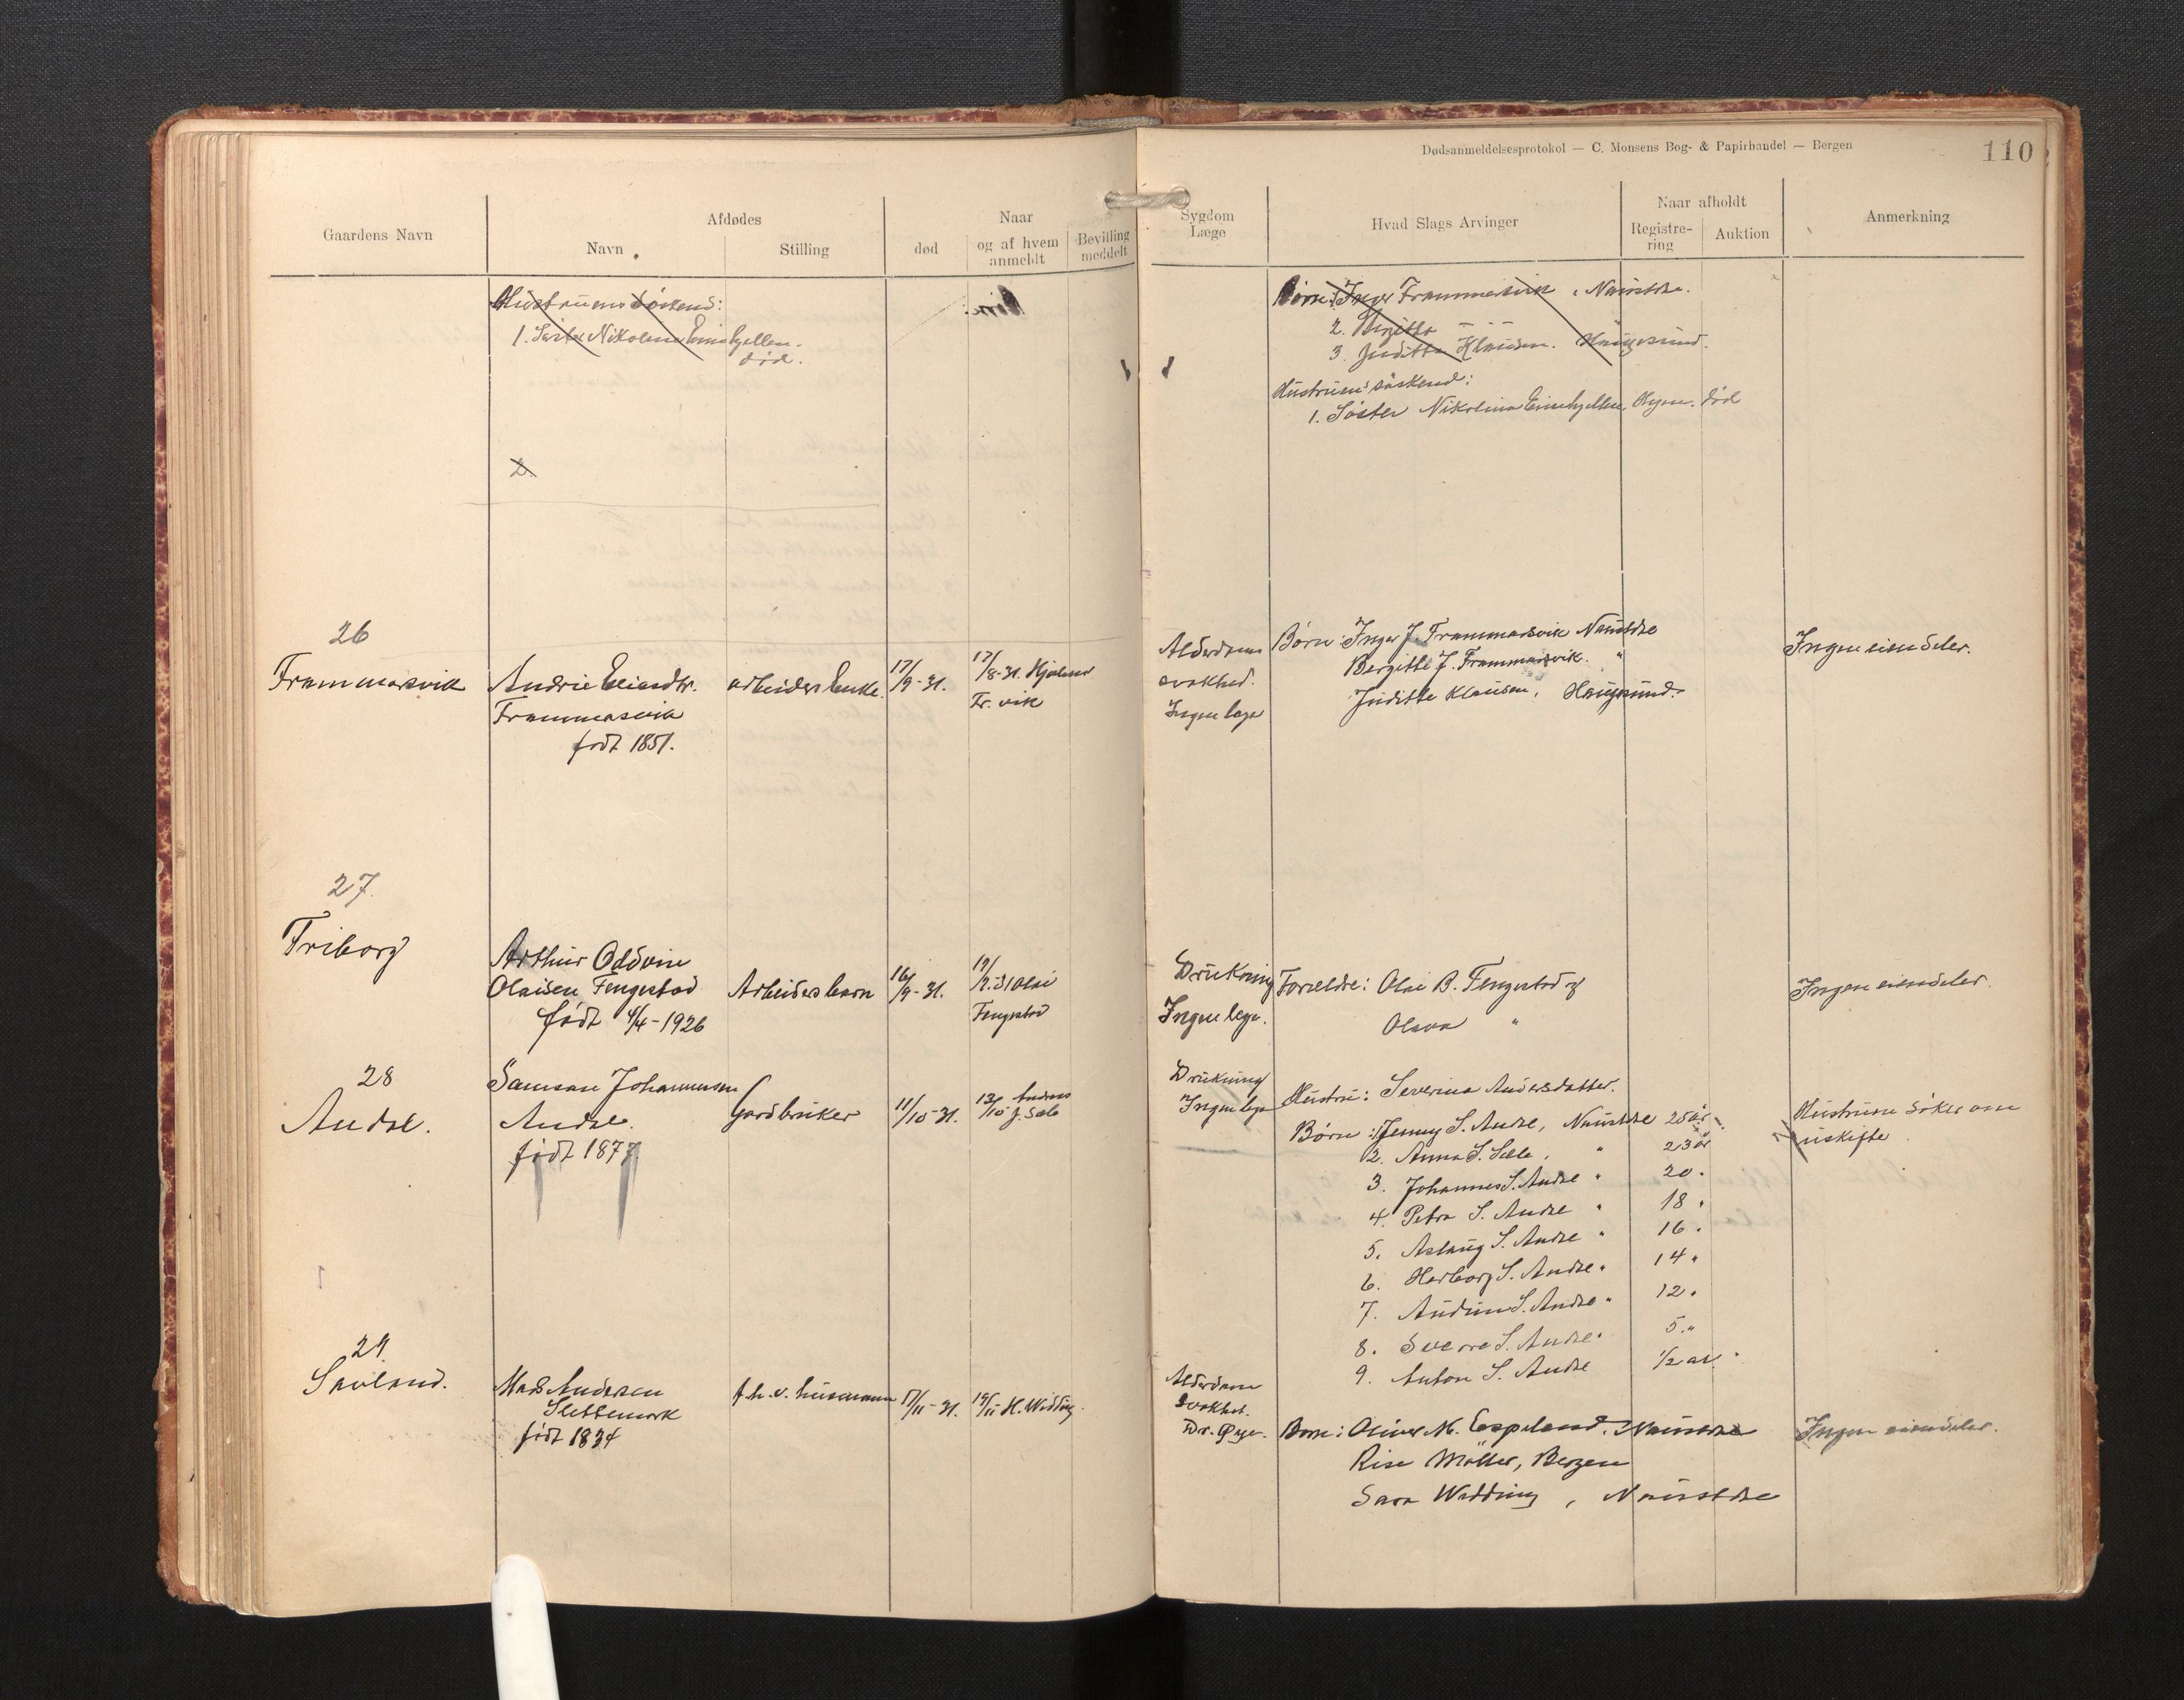 Dødsanmeldelsesprotokol — C. Monsens Bog- & Papirhandel — Bergen
110
Gaardens Navn
Afdødes
Navn
Stilling
Naar
død
og af hvem anmeldt
Bevilling meddelt
Sygdom
Læge
Hvad Slags Arvinger
Naar afholdt
Registre-
ring
Auktion
Anmerkning
Hustruens söskend:
1. Søster Nikolina
död.
Börn: Inger Frammarsvik, Naustdal.
2. Birgitte — " —
3. Juditte Klausen. Haugesund.
Hustruens söskend:
1. Söster Nikolina Hyen. död
2.
26
Frammarsvik
Andrie
Frammarsvik
født 1851.
arbeiders Enke.
17/9-31.
17/8-31. Hjalmar
Fr. vik
Alderdoms
svakhed.
Ingen læge
Børn: Inger J. Frammarsvik Naustdal
Bergitte J. Frammarsvik. "
Juditte Klausen, Haugesund.
Ingen eiendeler.
27.
Friborg
Arthur Oddvin
Olaisen Fengestad
født 4/4-1926
Arbeiders barn
16/9-31.
Olai
Fengestad
Drukning
Ingen lege.
Forældre: Olai B. Fengestad og
Olava "
Ingen eiendeler.
28
Andal.
Samson Johannessen
Andal.
født 1877
Gardbruker
11/10-31.
13/10 Anders
J. Sele
Drukning
Ingen lege
Hustru: Severina Andersdatter.
Børn: 1. Jenny S. Andal, Naustdal 25 år.
2. Anna S. Sele, " 23 år
3. Johannes S. Andal " 20 "
4. Petra S. Andal " 18 "
5. Aslaug S. Andal " 16 "
6. Herborg S. Andal " 14 "
7. Audun S. Andal " 12 "
8. Sverre S. Andal " 5 "
9. Anton S. Andal 1/2 år "
Hustruen söker om
uskifte
29
Mads Andersen
Slettemark
født 1834
f.h.v. husmann
17/11-31.
19/11 H. Widding.
Alderdoms
svakhet.
Dr.
Børn: Oliver M. Espeland, Naustdal
Risa Møller, Bergen
Sara Widding, Naustdal
Ingen eiendeler.